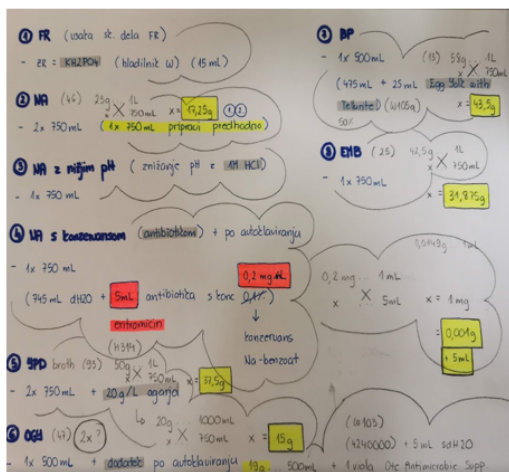 ① FR (vsaka sk. dela FR)
- ZR = KH2PO4 (hladilnik W) (15 mL)
② NA (46) 23g 1L
x 750mL x = 17,25g ① ②
- 2x 750mL (1x 750 mL pripravi predhodno)
③ NA z nižjim pH (znižanje pH z 1M HCl)
- 1x 750 mL
④ NA s konzervansom (antibiotikom) + po autoklaviranju
- 1x 750 mL
0,2 mg/mL
(745 mL dH2O + 5mL antibiotika s konc 0,1%)
eritromicin
(H314)
↓
konzervans
Na-benzoat
⑤ SPD broth (93) 50g 1L
x 750mL x = 37,5g
- 2x 750mL + 20g/L agarja
↳ 20g ... 1000mL
x 750mL x = 15g
⑥ OGY (47) 2x?
- 1x 500mL + dodatek po autoklaviranju 19g ... 500mL
⑦ BP
- 1x 500mL (13) 58g 1L
x 750mL
(475 + 25 mL Egg Yolk with
Tellurite) (W105a) x = 43,5g
50%
⑧ EMB (25) 42,5g 1L
x 750mL
- 1x 750mL
x = 31,875g
0,2 mg ... 1 mL
x 5mL x = 1 mg
= 0,001g
+ 5mL
(W103)
(4240000) + 5 mL sdH2O
1 viola Otc Antimicrobic Supp.